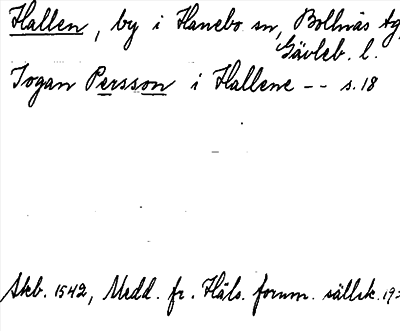 Hallen, by i Hanebo sn, Bollnäs tg,
Gävleb. l.
Jogan Persson i Hallene -- s. 18
Skb. 1542, Medd. fr. Häls. fornm. sällsk. 19